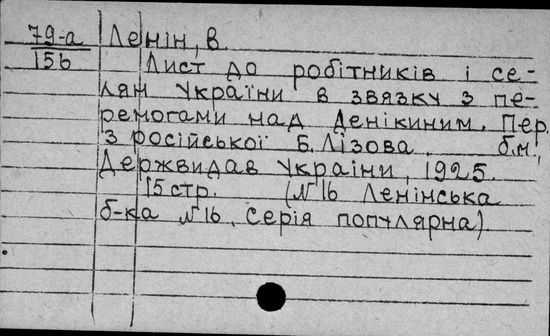 79-а Ленін, В.
15б Лист до робітників і се-
лян України в звязку з пе-
ремогами над Денікиним. Пер.
з російської Б. Лізова. б.м.,
Держвидав України, 1925.
15 стр. (№16 Ленінська
б-ка №16, серія популярна).